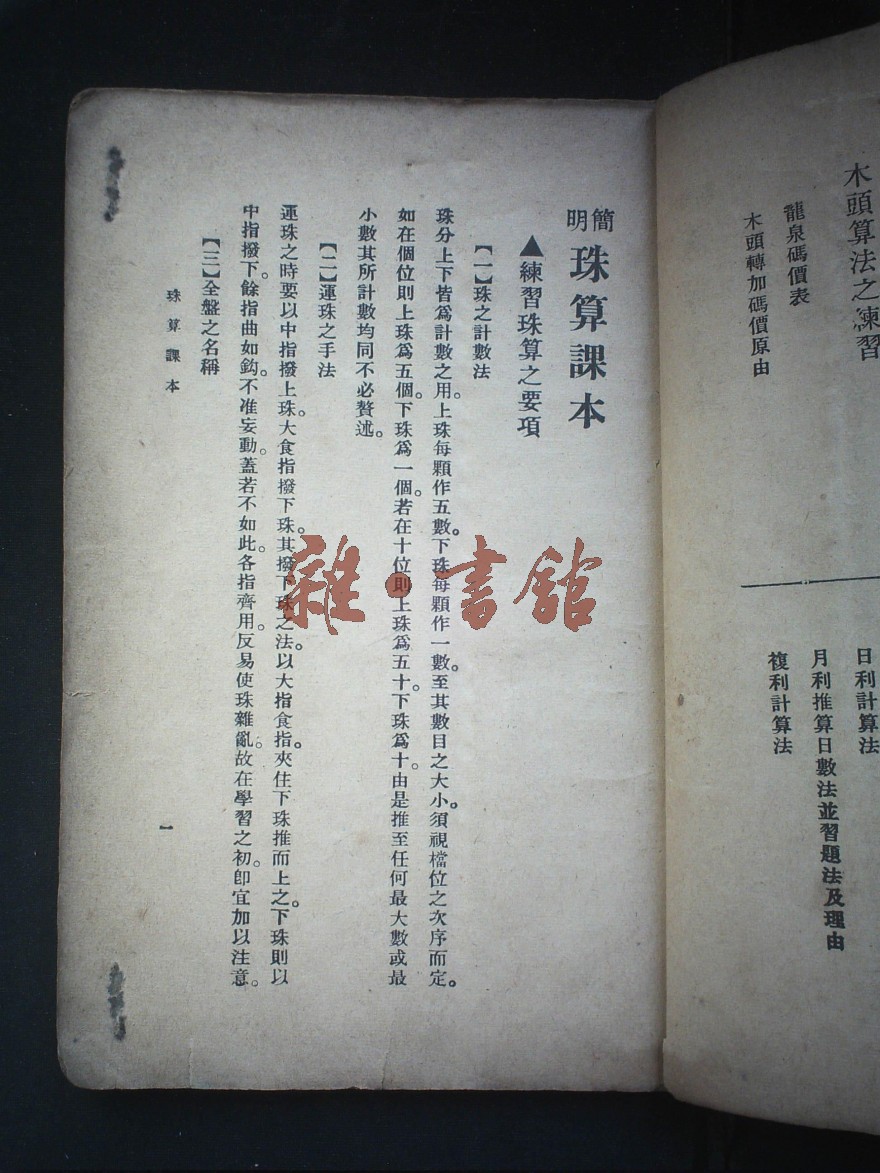 木頭算法之練習
龍泉碼價表
木頭轉加碼價原由
日利計算法
月利推算日數法並習題法及理由
複利計算法
簡明珠算課本
▲練習珠算之要項
【一】珠之計數法
珠分上下皆爲計數之用。上珠每顆作五數。下珠每顆作一數。至其數目之大小。須視檔位之次序而定。
如在個位則上珠爲五個。下珠爲一個。若在十位則上珠爲五十。下珠爲十。由是推至任何最大數或最
小數其所計數均同不必贅述。
【二】運珠之手法
運珠之時要以中指撥上珠。大食指撥下珠。其撥下珠之法。以大指食指。夾住下珠推而上之。下珠則以
中指撥下。餘指曲如鈎。不准妄動。蓋若不如此。各指齊用。反易使珠雜亂。故在學習之初。卽宜加以注意。
【三】全盤之名稱
珠算課本
一
雜·書館